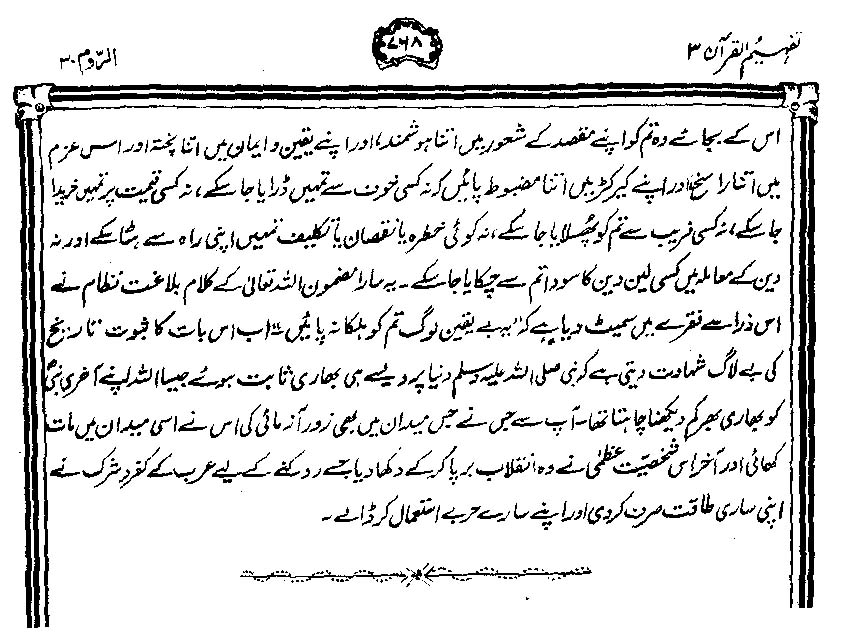 تفہیم القرآن ۳
۷۶۸
الرّوم ۳۰
اس کے بجائے وہ تم کو اپنے مقصد کے شعور میں اتنا ہوشمند، اور اپنے یقین و ایمان میں اتنا پختہ اور اس عزم
میں اتنا راسخ، اور اپنے کیرکٹر میں اتنا مضبوط پائیں کہ نہ کسی خوف سے تمہیں ڈرایا جا سکے، نہ کسی قیمت پر تمہیں خریدا
جا سکے، نہ کسی فریب سے تم کو پھسلایا جا سکے، نہ کوئی خطرہ یا نقصان یا تکلیف تمہیں اپنی راہ سے ہٹا سکے اور نہ
دین کے معاملہ میں کسی لین دین کا سودا تم سے چکایا جا سکے۔ یہ سارا مضمون اللہ تعالیٰ کے کلام بلاغت نظام نے
اس ذرا سے فقرے میں سمیٹ دیا ہے کہ ”یہ بے یقین لوگ تم کو ہلکا نہ پائیں“۔ اب اس بات کا ثبوت تاریخ
کی بے لاگ شہادت دیتی ہے کہ نبی صلی اللہ علیہ وسلم دنیا پر ویسے ہی بھاری ثابت ہوئے جیسا اللہ اپنے آخری نبیؐ
کو بھاری بھرکم دیکھنا چاہتا تھا۔ آپ سے جس نے جس میدان میں بھی زور آزمائی کی اس نے اسی میدان میں مات
کھائی اور آخر اس شخصیت عظمٰی نے وہ انقلاب برپا کر کے دکھا دیا جسے روکنے کے لیے عرب کے کفر و شرک نے
اپنی ساری طاقت صرف کر دی اور اپنے سارے حربے استعمال کر ڈالے۔